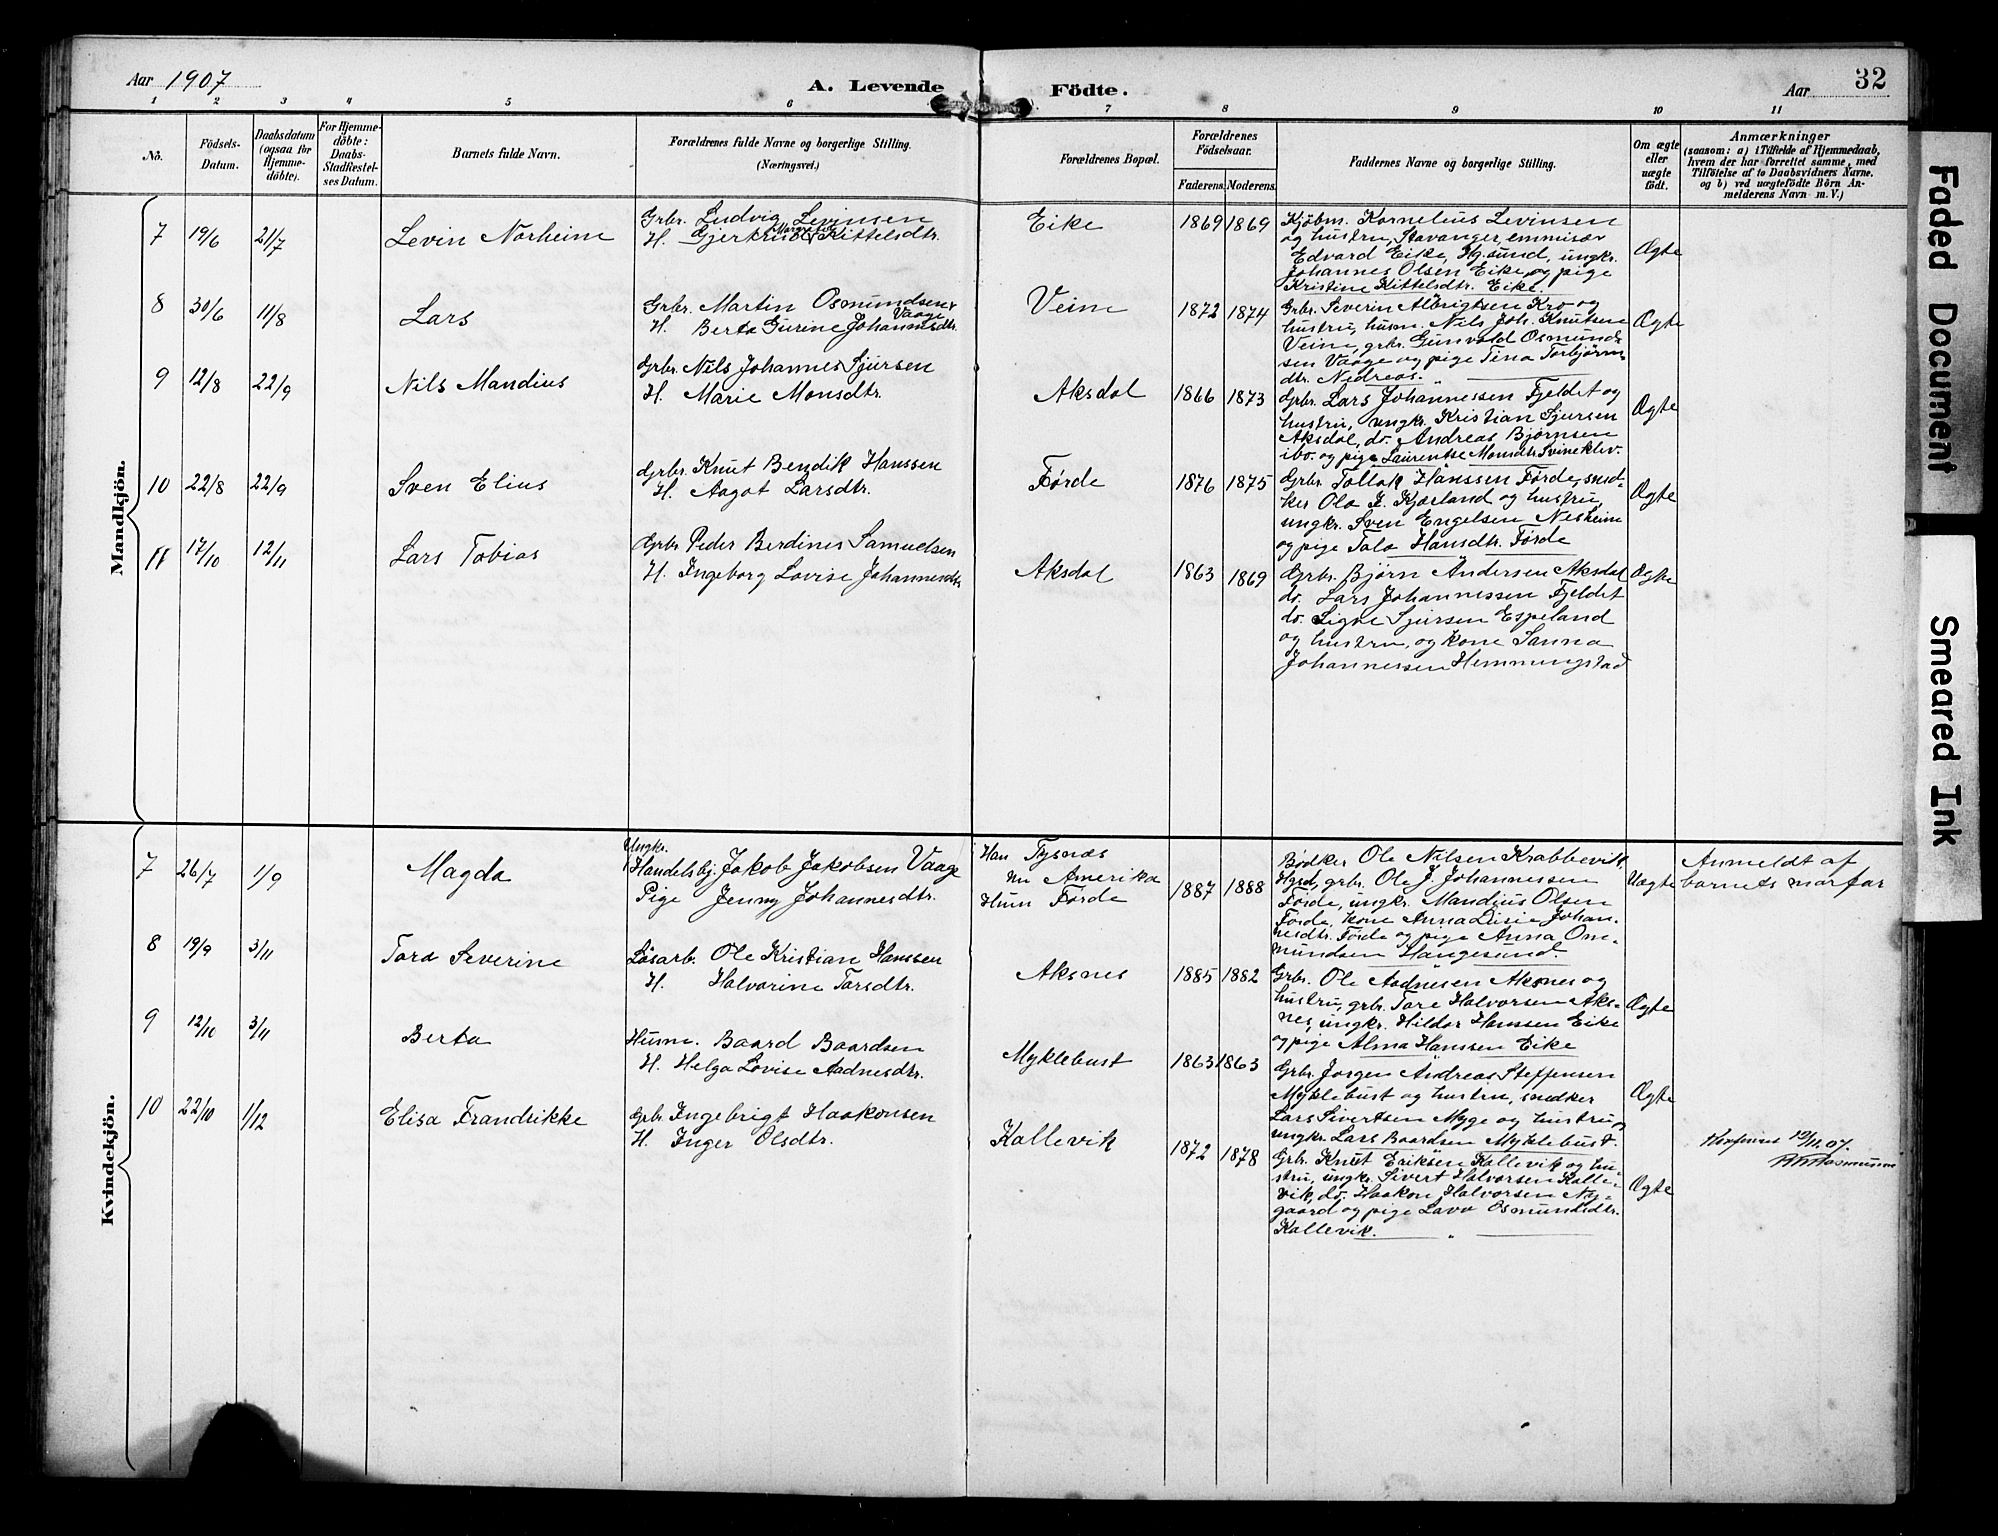 Aar 1907
A. Levende Födte.
Aar
32
1 2 3 4 5 6 7 8 9 10 11
No.
Födsels-
Datum.
Daabsdatum
(ogsaa for
Hjemme-
döbte).
For Hjemme-
döbte:
Daabs-
Stadfæstel-
ses Datum.
Barnets fulde Navn.
Forældrenes fulde Navne og borgerlige Stilling.
(Næringsvei.)
Forældrenes Bopæl.
Forældrenes
Födselsaar.
Faderens. Moderens.
Faddernes Navne og borgerlige Stilling.
Om ægte
eller
uægte
födt.
Anmærkninger
(saasom: a) i Tilfælde af Hjemmedaab,
hvem der har forrettet samme, med
Tilföielse af to Daabsvidners Navne,
og b) ved uægtefödte Börn An-
melderens Navn m. V.)
Mandkjön.
7 19/6 21/7
Levin Norheim
Grbr. Ludvig Levinsen
H. Gjertrud Kittelsdtr.
Eike
1869 1869
Kjøbm. Kornelius Levinsen
og hustru, Stavanger, emmisær
Edvard Eike, Hg.sund, ungkr.
Johannes Olsen Eike, og pige
Kristine Kittelsdtr. Eike.
Ægte
8 30/6 11/8
Lars
Grbr. Martin Osmundsen
Vaage
H. Berta Gurine Johannesdtr.
Veim
1872 1874
Grbr. Severin Albrigtsen Kro og
hustru, husm. Nils Joh. Knutsen
Veim, grbr. Gunvald Osmund-
sen Vaage og pige Tina Torbjørns-
dtr. Nedreas.
Ægte
9 12/8 22/9
Nils Mandius
Grbr. Nils Johannes Sjursen
H. Marie Monsdtr.
Aksdal
1866 1873
Grbr. Lars Johannessen Fjeldet og
hustru, ungkr. Kristian Sjursen
Aksdal, do. Andreas Bjørnsen
ibo. og pige Laurentse Monsdtr. Svineklev.
Ægte
10 22/8 22/9
Sven Elius
Grbr. Knut Bendik Hanssen
H. Aagot Larsdtr.
Førde
1876 1875
Grbr. Tollak Hanssen Førde, sned-
ker Ola J. Kjærland og hustru,
ungkr. Sven Engelsen Nesheim
og pige Tala Hansdtr. Førde
Ægte
11 17/10 12/11
Lars Tobias
Grbr. Peder Berdines Samuelsen
H. Ingeborg Lovise Johannesdtr
Aksdal
1863 1869
Grbr. Bjørn Andersen Aksdal
do. Lars Johannessen Fjeldet
do. Sigve Sjursen Espeland
og hustru, og kone Sanna
Johannessen Hemmingstad
Ægte
Kvindekjön.
7 26/7 1/9
Magda
Ungkr.
Handelsbj. Jakob Jakobsen Vaage
Pige Jenny Johannesdtr.
Han Tysnæs
nu Amerika
Hun Førde
1887 1888
Bødker Ole Nilsen Krabbevik,
Hgsd, grbr. Ole J. Johannessen
Førde, ungkr. Mandius Olsen
Førde, kone Anna Lisie Johan-
nesdtr. Førde og pige Anna Om-
mundsen Haugesund.
Uægte
Anmeldt af
barnets morfar
8 19/9 3/11
Tora Severine
Løsarb. Ole Kristian Hanssen
H. Halvorine Torsdtr.
Aksnes
1885 1882
Grbr. Ole Aadnesen Aksnes og
hustru, grbr. Tore Halvorsen Aks-
nes, ungkr. Hildor Hanssen Eike
og pige Alma Hanssen Eike
Ægte
9 12/10 3/11
Berta
Husm. Baard Baardsen
H. Helga Lovise Aadnesdtr.
Myklebust
1863 1863
Grbr. Jørgen Andreas Steffensen
Myklebust og hustru, snedker
Lars Sivertsen Myge og hustru og
ungkr. Lars Baardsen Myklebust.
Ægte
10 22/10 1/12
Elisa Frandrikke
Grbr Ingebrigt Haakonsen
H. Inger Olsdtr.
Kallevik
1872 1878
Grb. Knut Eriksen Kallevik og hu-
stru, ungkr. Sivert Halvorsen Kalle-
vik, do. Haakon Halvorsen Ny-
gaard og pige Lava Osmundsdtr.
Kallevik.
Ægte
Faded Document
Smeared Ink